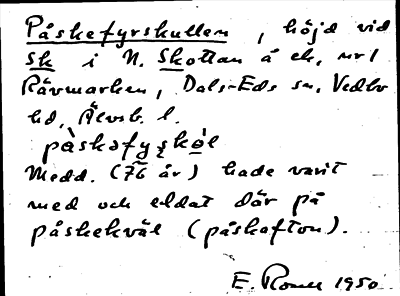 Påskefyrskullen, höjd vid
Sk i N. Skottan å ek, nr 1
Rävmarken, Dals-Eds sn, Vedbo
hd, Älvsb. l.
påskəfyṣköl
Medd. (76 år) hade varit
med och eldat där på
påskekväl (påskafton).
E. 1950